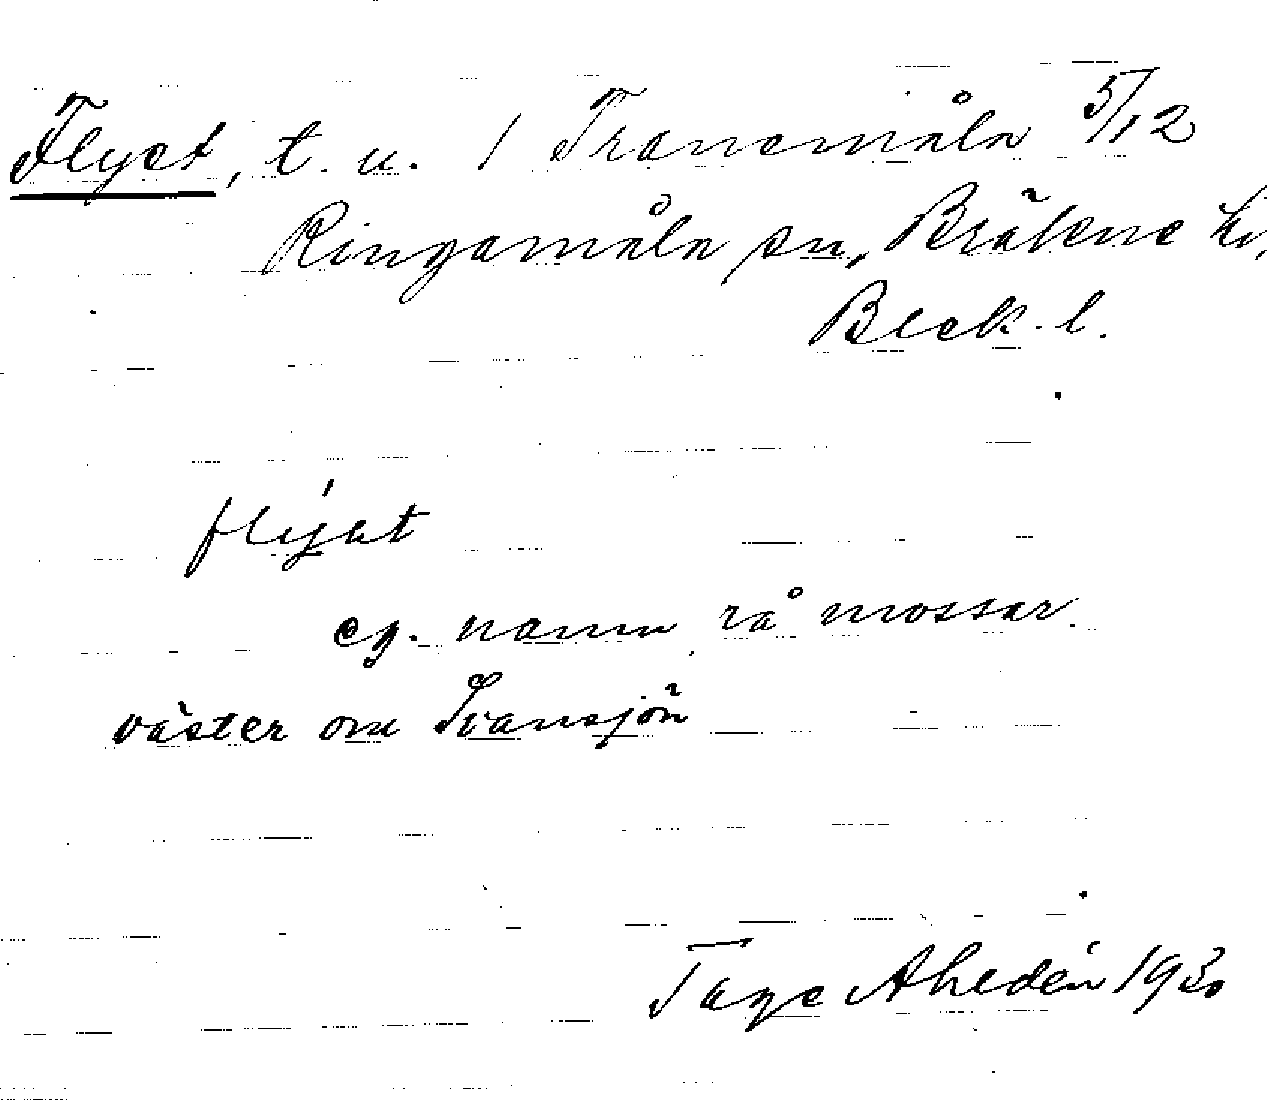 Flyet, t. u. 1 Tranemåla 5/12
Ringamåla sn, Bräkne hd,
Blek. l.
flýət
eg. namn på mossar.
väster om Transjön
Tage Ahldén 1930